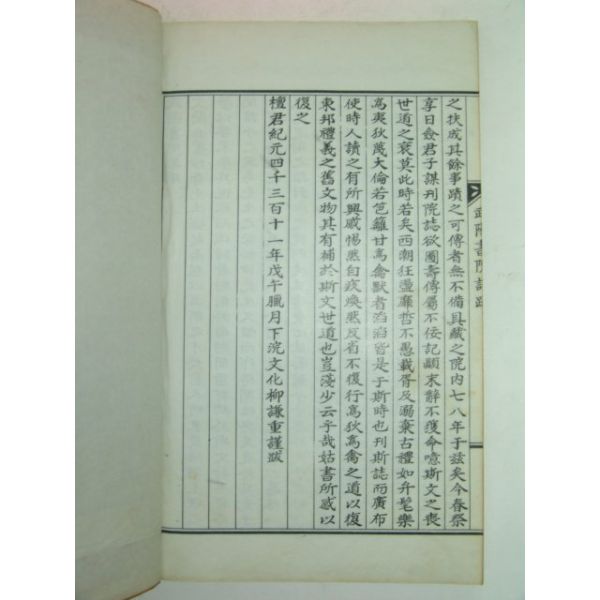 武陽書院誌跋
之扶成其餘事蹟之可傳者無不備具藏之院内七八年于玆矣今春祭
享日僉君子謀刊院誌欲圖壽傳屬不佞記顚末辭不獲命噫斯文之喪
世道之衰莫此時若矣西潮狂盪靡哲不愚載胥及溺棄古禮如弁髦樂
爲夷狄蔑大倫若笆籬甘爲禽獸者滔滔皆是于斯時也刊斯誌而廣布
使時人讀之有所興感惕然自疚煥然反省不復行爲狄爲禽之道以復
東邦禮義之舊文物其有補於斯文世道也豈淺少云乎哉姑書所感以
復之
檀君紀元四千三百十一年戊午臘月下浣文化柳謙重謹跋